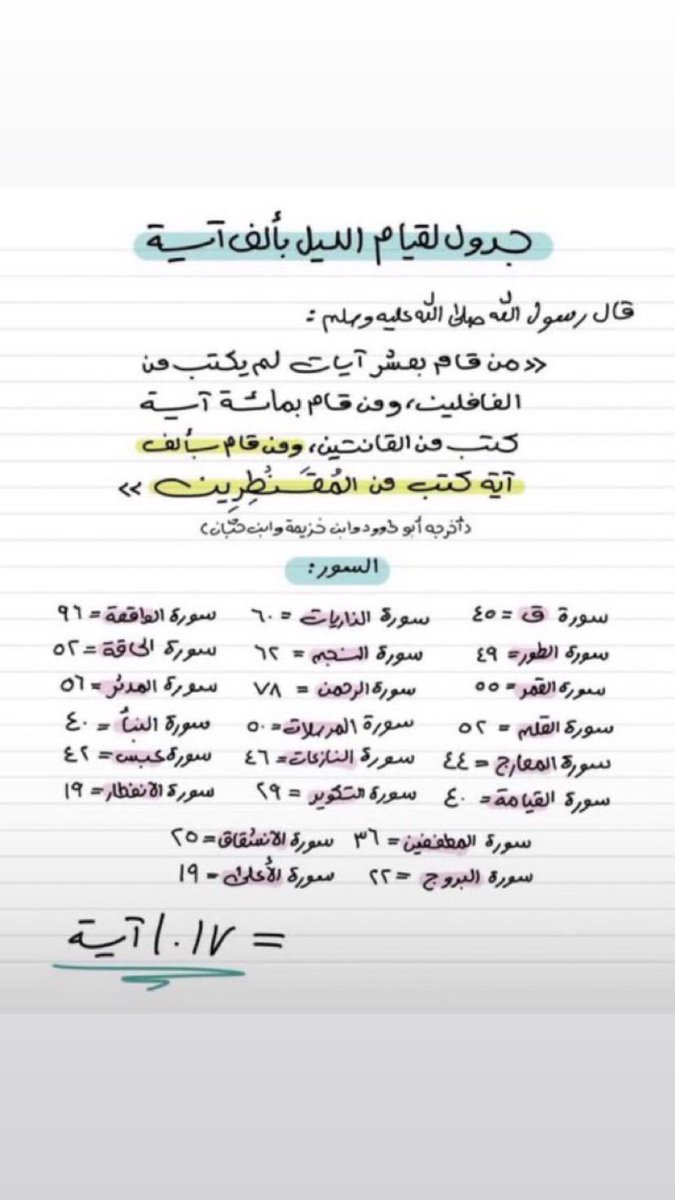 جدول لقيام الليل بألف آية
قال رسول الله صلى الله عليه وسلم :
«من قام بعشر آيات لم يكتب من
الغافلين، ومن قام بمائة آية
كتب من القانتين، ومن قام بألف
آية كتب من المُقَنْطِرِين»
(أخرجه أبو داوود وابن خزيمة وابن حبّان)
السور:
سورة ق = ٤٥ سورة الذاريات = ٦٠ سورة الواقعة = ٩٦
سورة الطور = ٤٩ سورة النجم = ٦٢ سورة الحاقة = ٥٢
سورة القمر = ٥٥ سورة الرحمن = ٧٨ سورة المدثر = ٥٦
سورة القلم = ٥٢ سورة المرسلات = ٥٠ سورة النبأ = ٤٠
سورة المعارج = ٤٤ سورة النازعات = ٤٦ سورة عبس = ٤٢
سورة القيامة = ٤٠ سورة التكوير = ٢٩ سورة الانفطار = ١٩
سورة المطففين = ٣٦ سورة الانشقاق = ٢٥
سورة البروج = ٢٢ سورة الأعلى = ١٩
= ١٠١٧ آية